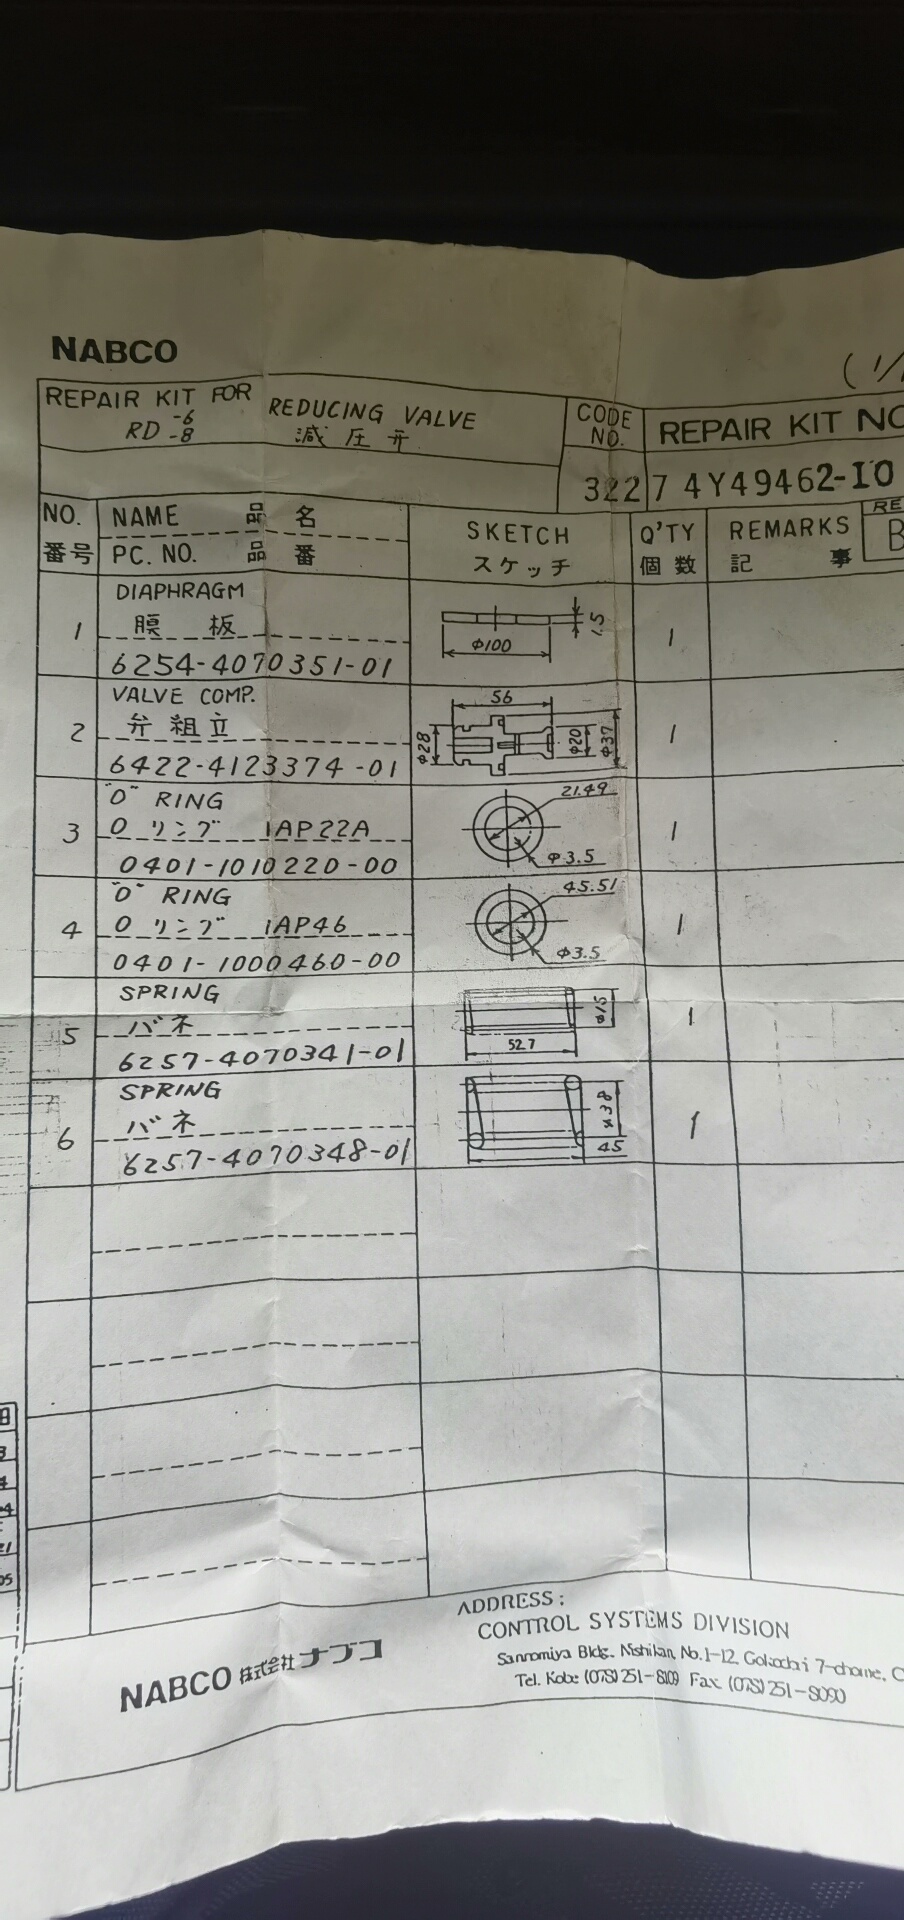 NABCO
(1/
REPAIR KIT FOR
RD -6
-8
REDUCING VALVE
減圧弁
CODE NO.
REPAIR KIT NO
322 7 4Y49462-10
NO.
番号
NAME 品名
PC. NO. 品番
SKETCH
スケッチ
Q'TY
個数
REMARKS
記事
RE
B
1
DIAPHRAGM
膜板
6254-4070351-01
φ100
1.5
1
2
VALVE COMP.
弁組立
6422-4123374-01
56
φ28
φ20
φ37
1
3
"O" RING
Oリング 1AP22A
0401-1010220-00
21.49
φ3.5
1
4
"O" RING
Oリング 1AP46
0401-1000460-00
45.51
φ3.5
1
5
SPRING
バネ
6257-4070341-01
φ15
52.7
1
6
SPRING
バネ
6257-4070348-01
38
45
1
ADDRESS:
CONTROL SYSTEMS DIVISION
Sannomiya Bldg. Nishikan, No.1-12, Gokodori 7-chome, C
Tel. Kobe (078) 251-8109 Fax (078) 251-8090
NABCO 株式会社ナブコ